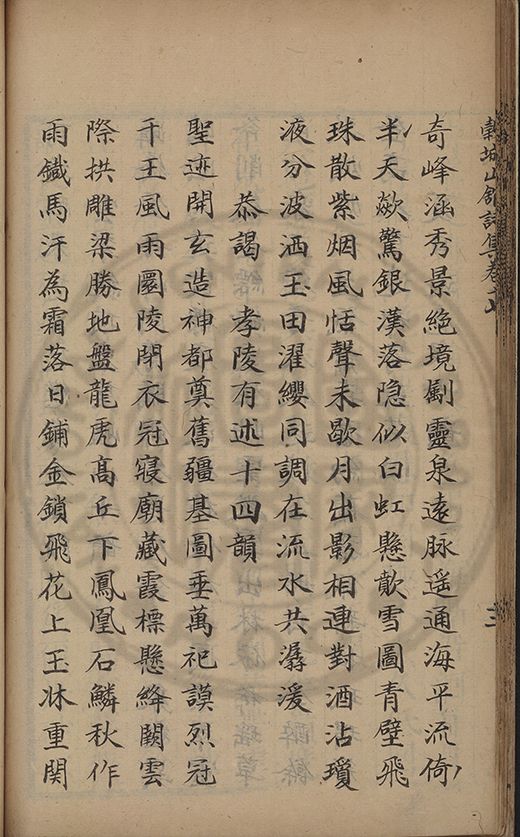 穀城山館詩集卷之六
三
奇峰涵秀景絕境劚靈泉遠脉遥通海平流倚
半天歘驚銀漢落隐似白虹懸歕雪圖青壁飛
珠散紫烟風恬聲未歇月出影相連對酒沾瓊
液分波洒玉田濯纓同調在流水共潺湲
恭謁孝陵有述十四韻
聖迹開玄造神都奠舊疆基圖垂萬祀謨烈冠
千王風雨園陵閉衣冠寢廟藏霞標懸絳闕雲
際拱雕梁勝地盤龍虎高丘下鳳凰石鱗秋作
雨鐵馬汗為霜落日鋪金鎖飛花上玉牀重関